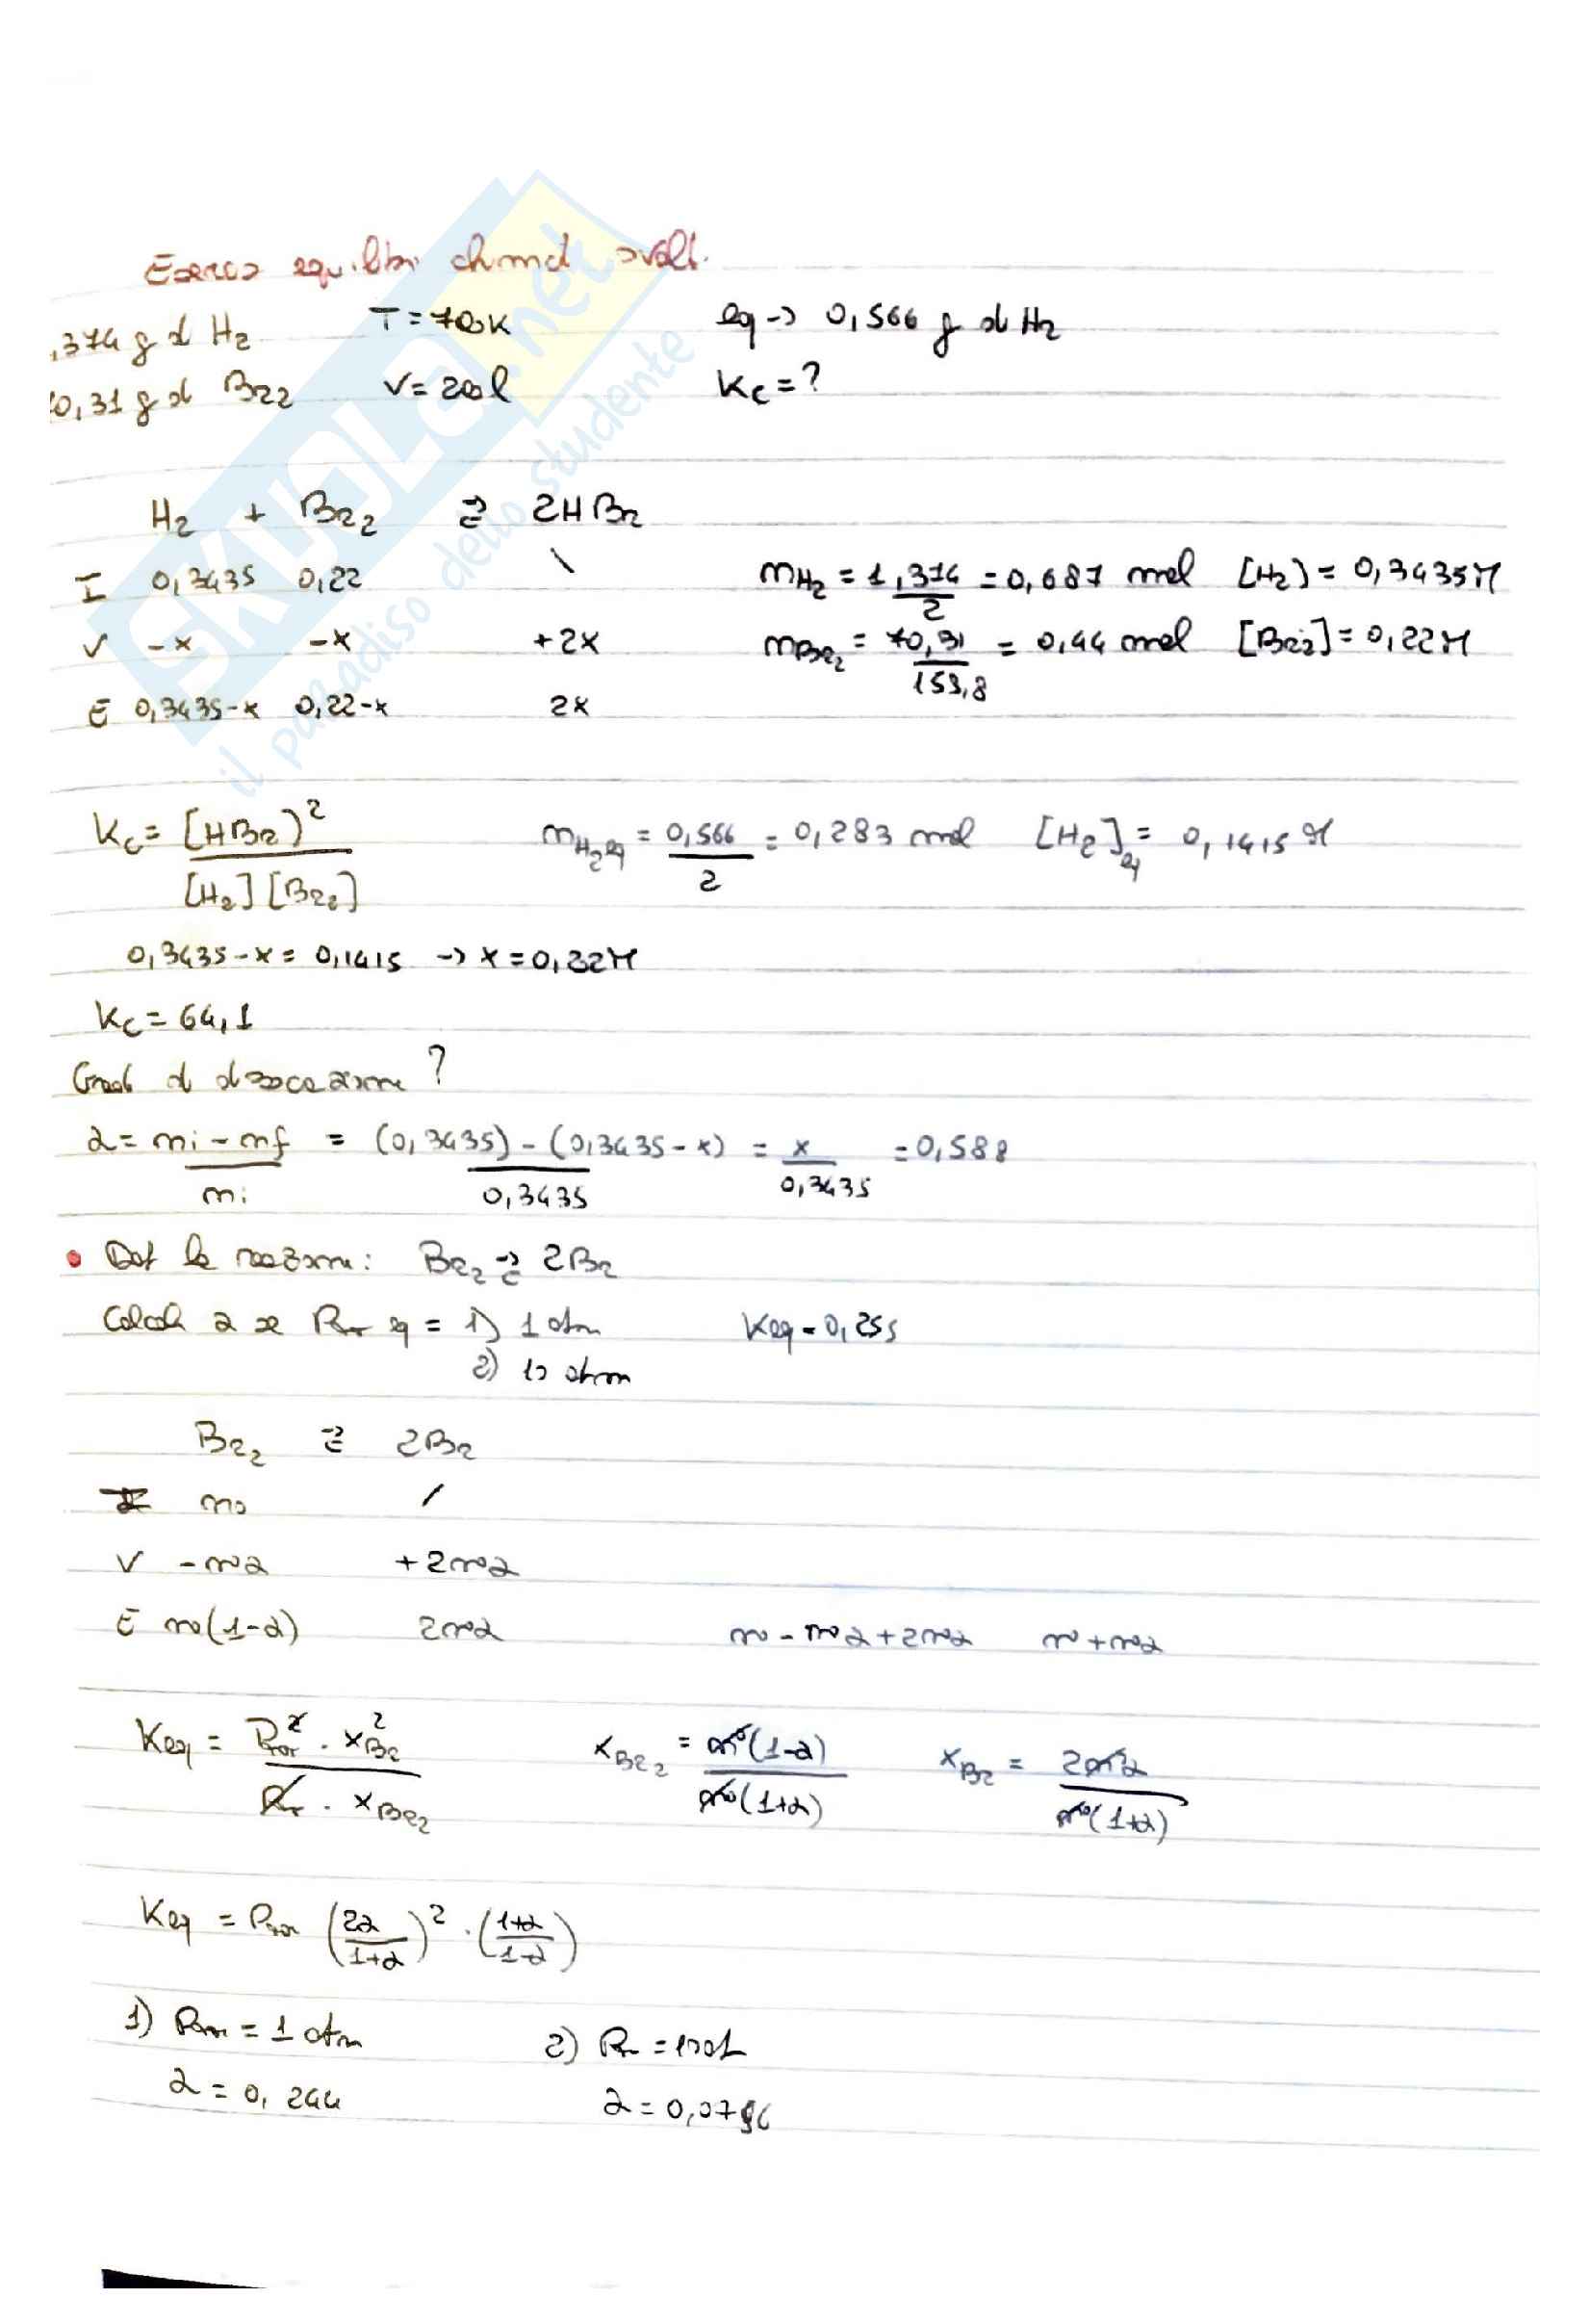 Esercizi equilibri chimici svolti.
,374 g di H2 T = 700K eq -> 0,566 g di H2
0,31 g di Br2 V = 2,00l Kc = ?
H2 + Br2 ⇄ 2HBr
I 0,3435 0,22 \ mH2 = 1,374/2 = 0,687 mol [H2] = 0,3435M
V -x -x +2x mBr2 = 70,31/159,8 = 0,44 mol [Br2] = 0,22M
E 0,3435-x 0,22-x 2x
Kc = [HBr]²/[H2][Br2] mH2eq = 0,566/2 = 0,283 mol [H2]eq = 0,1415 M
0,3435-x = 0,1415 -> x = 0,22M
Kc = 64,1
Grado di dissociazione?
α = ni-nf/ni = (0,3435)-(0,3435-x)/0,3435 = x/0,3435 = 0,588
• Data la reazione: Br2 ⇄ 2Br
Calcola α se Ptot eq = 1) 1 atm Keq = 0,255
2) 10 atm
Br2 ⇄ 2Br
I n0 /
V -n0α +2n0α
E n0(1-α) 2n0α n0 - n0α + 2n0α n0 + n0α
Keq = Ptot² · xBr²/Ptot · xBr2 xBr2 = n0(1-α)/n0(1+α) xBr = 2n0α/n0(1+α)
Keq = Ptot (2α/1+α)² · (1+α/1-α)
1) Ptot = 1 atm 2) Ptot = 10 atm
α = 0,244 α = 0,0796
SKUOLA.net
il paradiso dello studente